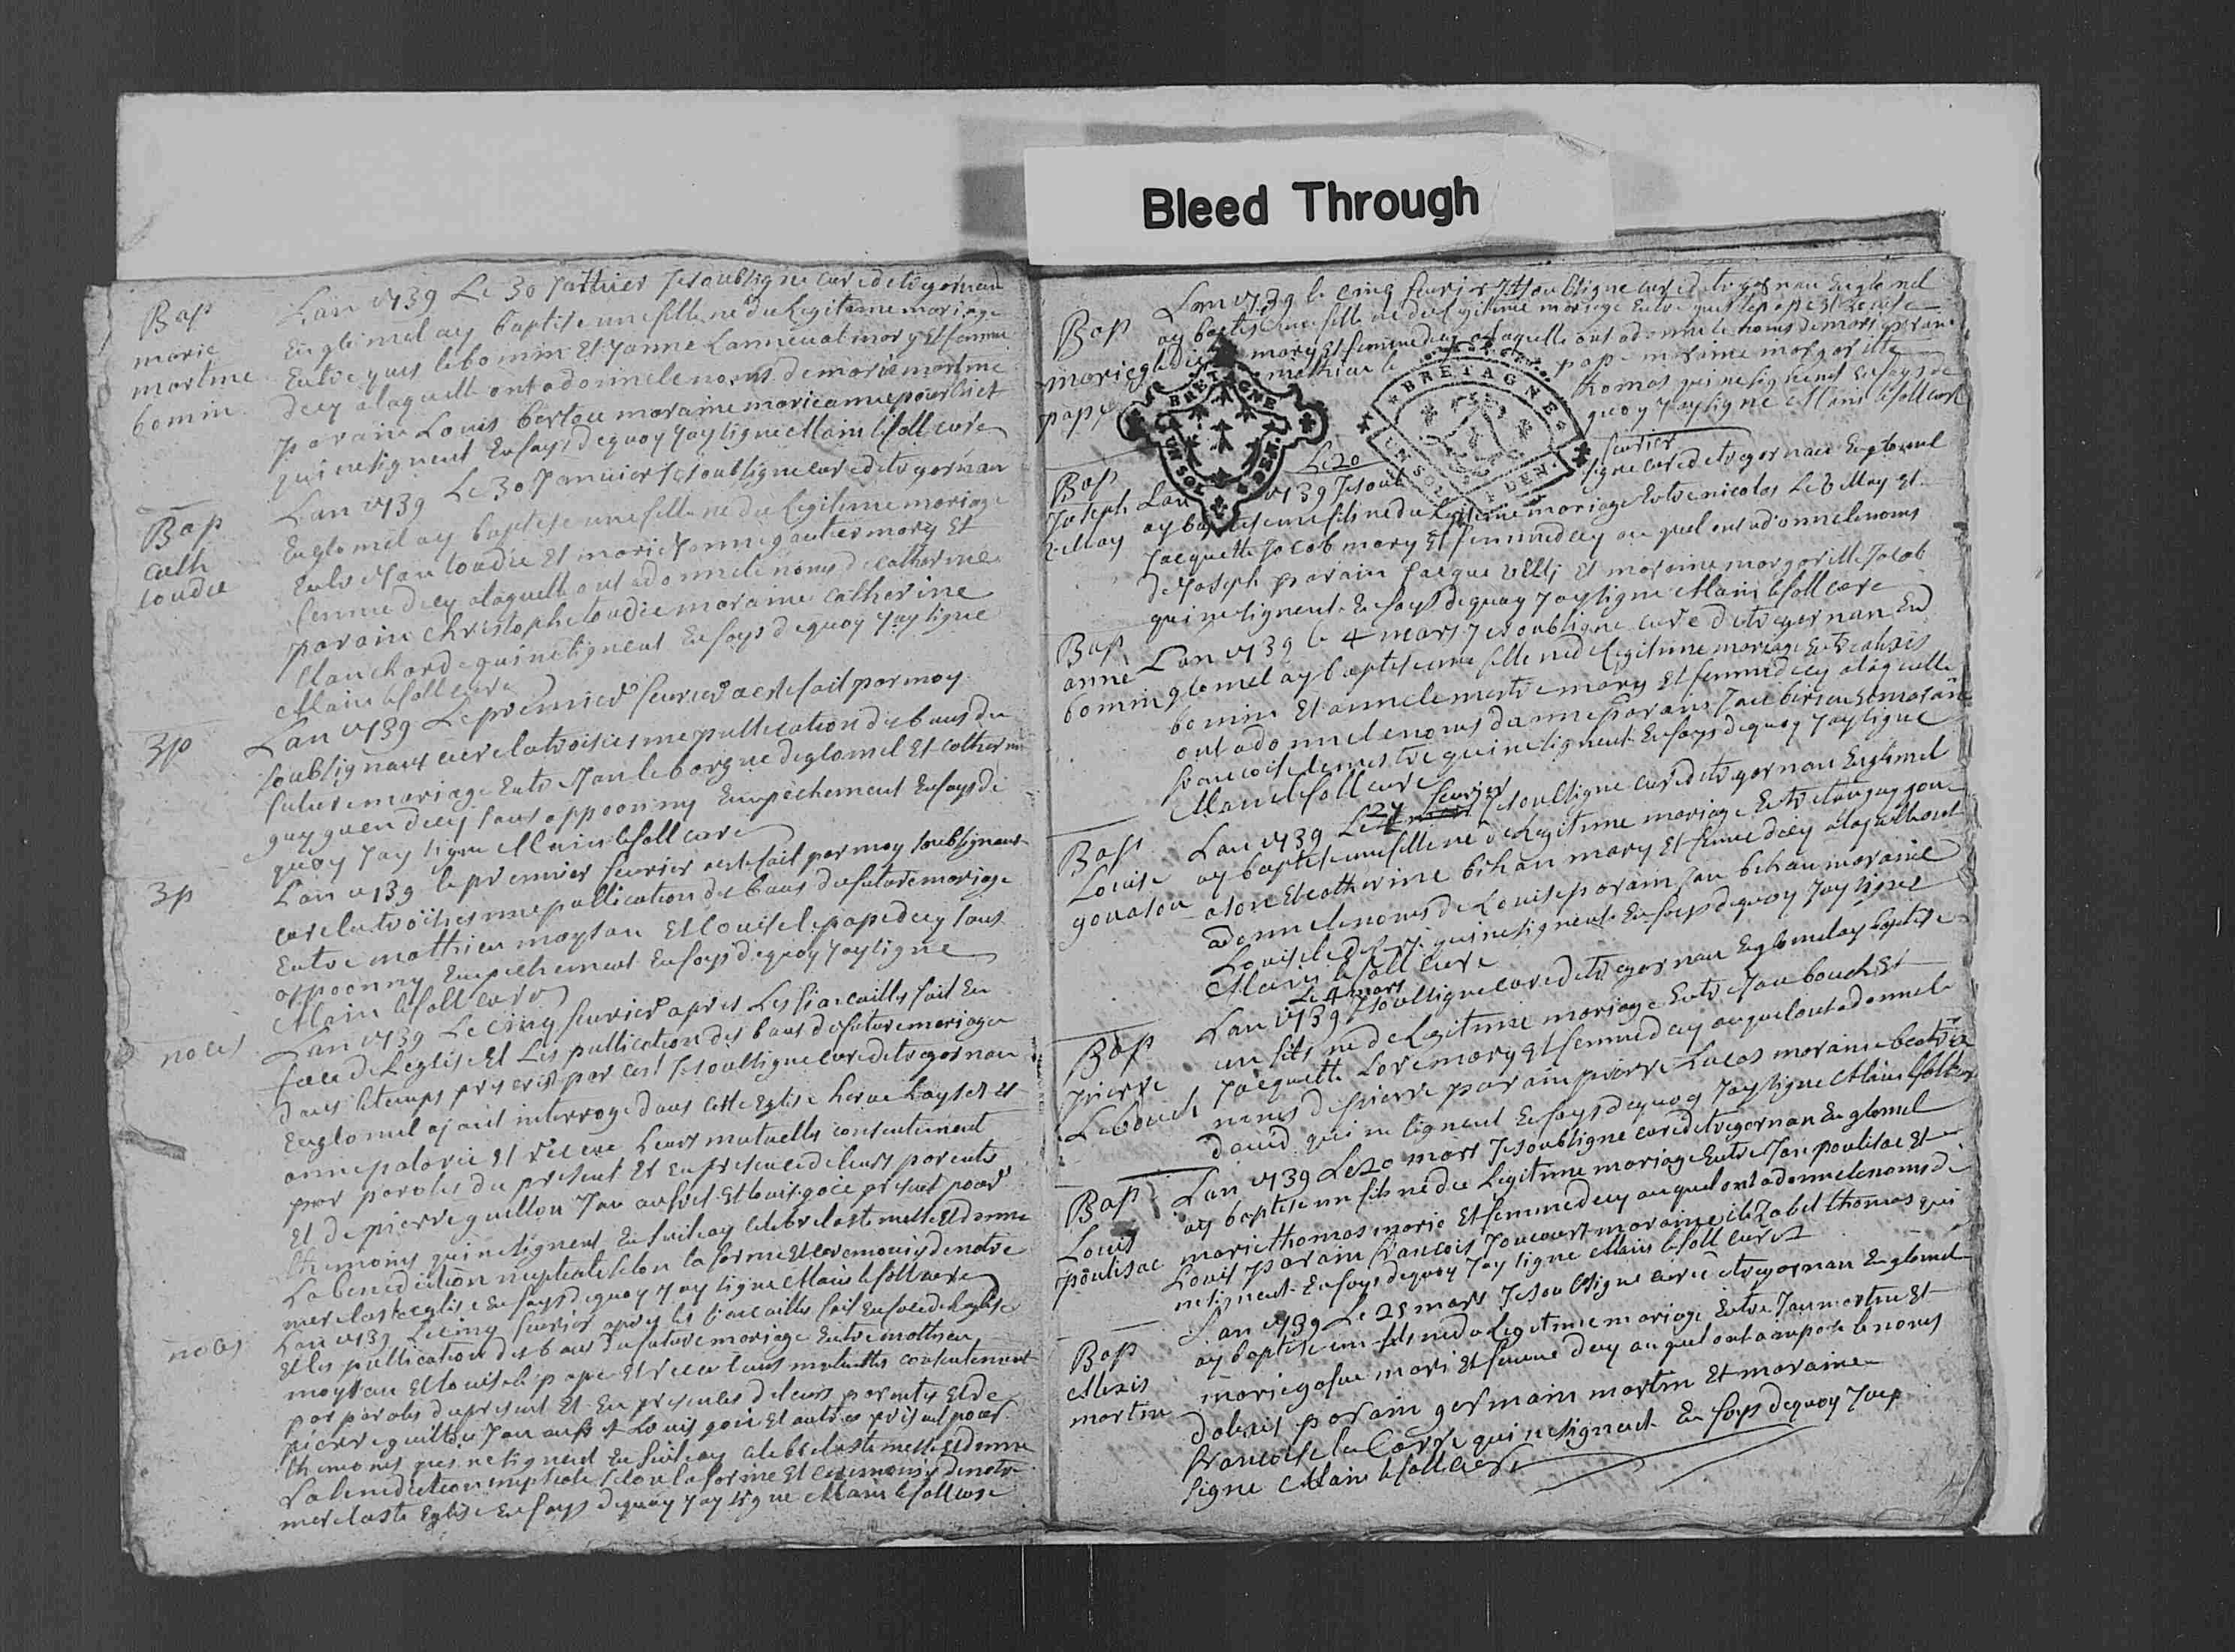 Bleed Through
Bap
marie
martine
bomin
Lan 1739 Le 30 Janvier Je soubsigne cure de tregornan
En glomel ay baptise une fille né du Legitime mariage
Entre yves le bomin Et Janne Lanneval mary Et femme
decy alaquelle ont adonne le noms de marie martine
parain Louis bertou maraine marie anne
qui ne signent En foys dequoy Jay signe Alain le foll cure
Bap
cath
loudic
Lan 1739 Le 30 Janvier Je soubsigne cure de tregornan
En glomel ay baptise une fille ne du Legitime mariage
Entre Jan loudic Et marie Janne gautier mary Et
femme decy alaquelle ont adonne le noms de catherine
parain christophe loudic maraine catherine
blanchard qui ne signent En foys dequoy Jay signe
Alain le foll cure
3 p
Lan 1739 Le premier fevrier a este fait par moy
soubsignant cure la troisiesme publication des bans du
future mariage Entre Jan le borgne de glomel Et catherine
guyguen decy sans oppoon ny Empechement En foys de
quoy Jay signe Alain le foll cure
3 p
Lan 1739 le premier fevrier a este fait par moy soubsignant
cure la troisiesme publication des bans du future mariage
Entre mathieu maytan Et Louise le pape decy sans
oppoon ny Empechement En foys dequoy Jay signe
Alain le foll cure
noces
Lan 1739 Le cinq fevrier apres Les fiancailles fait En
face de Leglise Et Les publication des bans du future mariage
dans le temps prescrit par Je soubsigne cure de tregornan
En glomel ajant interroge dans cette Eglise herve Et
anne Et receue Leurs mutuelles consentement
par paroles du present Et En presence de leurs parents
Et de pierre guillou Jan Et louis goic present pour
themoins qui ne signent En suite ay celebre la ste messe Et donne
La benediction nuptiale selon la forme Et ceremonies de notre
mere la ste eglise En foys dequoy Jay signe Alain le foll cure
noces
Lan 1739 Le cinq fevrier apres les fiancailles fait En face de Leglise
Et les publication des bans du future mariage Entre mathieu
maytan Et louise le pape Et receu leurs mutuelles consentement
par paroles du present Et En presence de leurs parents Et de
pierre guillou Jan Louis goic Et autres present pour
themoins qui ne signent En suite ay celebre la ste messe Et donne
La benediction nuptiale selon la forme Et ceremonies de notre
mere la ste Eglise En foys dequoy Jay signe Alain le foll cure
Bap
marie
pape
Lan 1739 le cinq fevrier Je soubsigne cure de tregornan En glomel
ay baptise une fille ne du Legitime mariage Entre yves le pape Et
mary Et femme decy alaquelle ont adonne le noms de marie
mathieu le pape maraine margaritte
thomas qui ne signent En foys de
quoy Jay signe Alain le foll cure
BRETAGNE
BRETAGNE
Bap
Joseph
Le May
Le 20 fevrier
Lan 1739 Je soubsigne cure de tregornan En glomel
ay baptise un fils ne du Legitime mariage Entre nicolas Le May Et
Jacquette Jacob mary Et femme decy au quel ont adonne le noms
de Joseph parain Jacque Et maraine margaritte Jacob
qui ne signent En foys dequoy Jay signe Alain le foll cure
Bap
anne
bomin
Lan 1739 le 4 mars Je soubsigne cure de tregornan En
glomel ay baptise une fille ne de Legitime mariage Entre alexis
bomin Et anne le mestre mary Et femme decy alaquelle
ont adonne le noms danne parain Jan Et maraine
francoise le mestre qui ne signent En foys dequoy Jay signe
Alain le foll cure
Bap
Louise
gouaton
27 fevrier
Lan 1739 Le Je soubsigne cure de tregornan En glomel
ay baptise une fille ne de Legitime mariage Entre
Et catherine bihan mary Et femme decy alaquelle ont
adonne le noms de Louise parain Jan bihan maraine
Louise qui ne signent En foys dequoy Jay signe
Alain le foll cure
Bap
pierre
Le bouch
Le 4 mars
Lan 1739 Je soubsigne cure de tregornan En glomel ay baptise
un fils ne de Legitime mariage Entre Jan bouch Et
Jacquette mary Et femme decy auquel ont adonne le
noms de pierre parain pierre Lucas maraine
david qui ne signent En foys dequoy Jay signe Alain le foll cure
Bap
Louis
poulisac
Lan 1739 Le 20 mars Je soubsigne cure de tregornan En glomel
ay baptise un fils ne du Legitime mariage Entre Jan poulisac Et
marie thomas marie Et femme decy auquel ont adonne le noms de
Louis parain francois maraine thomas qui
ne signent En foys dequoy Jay signe Alain le foll cure
Bap
Alexis
martin
Lan 1739 Le 25 mars Je soubsigne cure de tregornan En glomel
ay baptise un fils ne du Legitime mariage Entre Jan martin Et
marie mari Et femme decy auquel ont aimpose le noms
dalexis parain germain martin Et maraine
francoise qui ne signent En foys dequoy Jay
signe Alain le foll cure